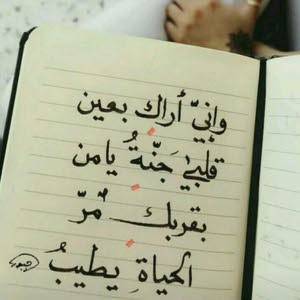 وإنيّ أراك بعين
قلبي جَنّةُ يامن
بقربك مُرّ
الحياةِ يطيبُ